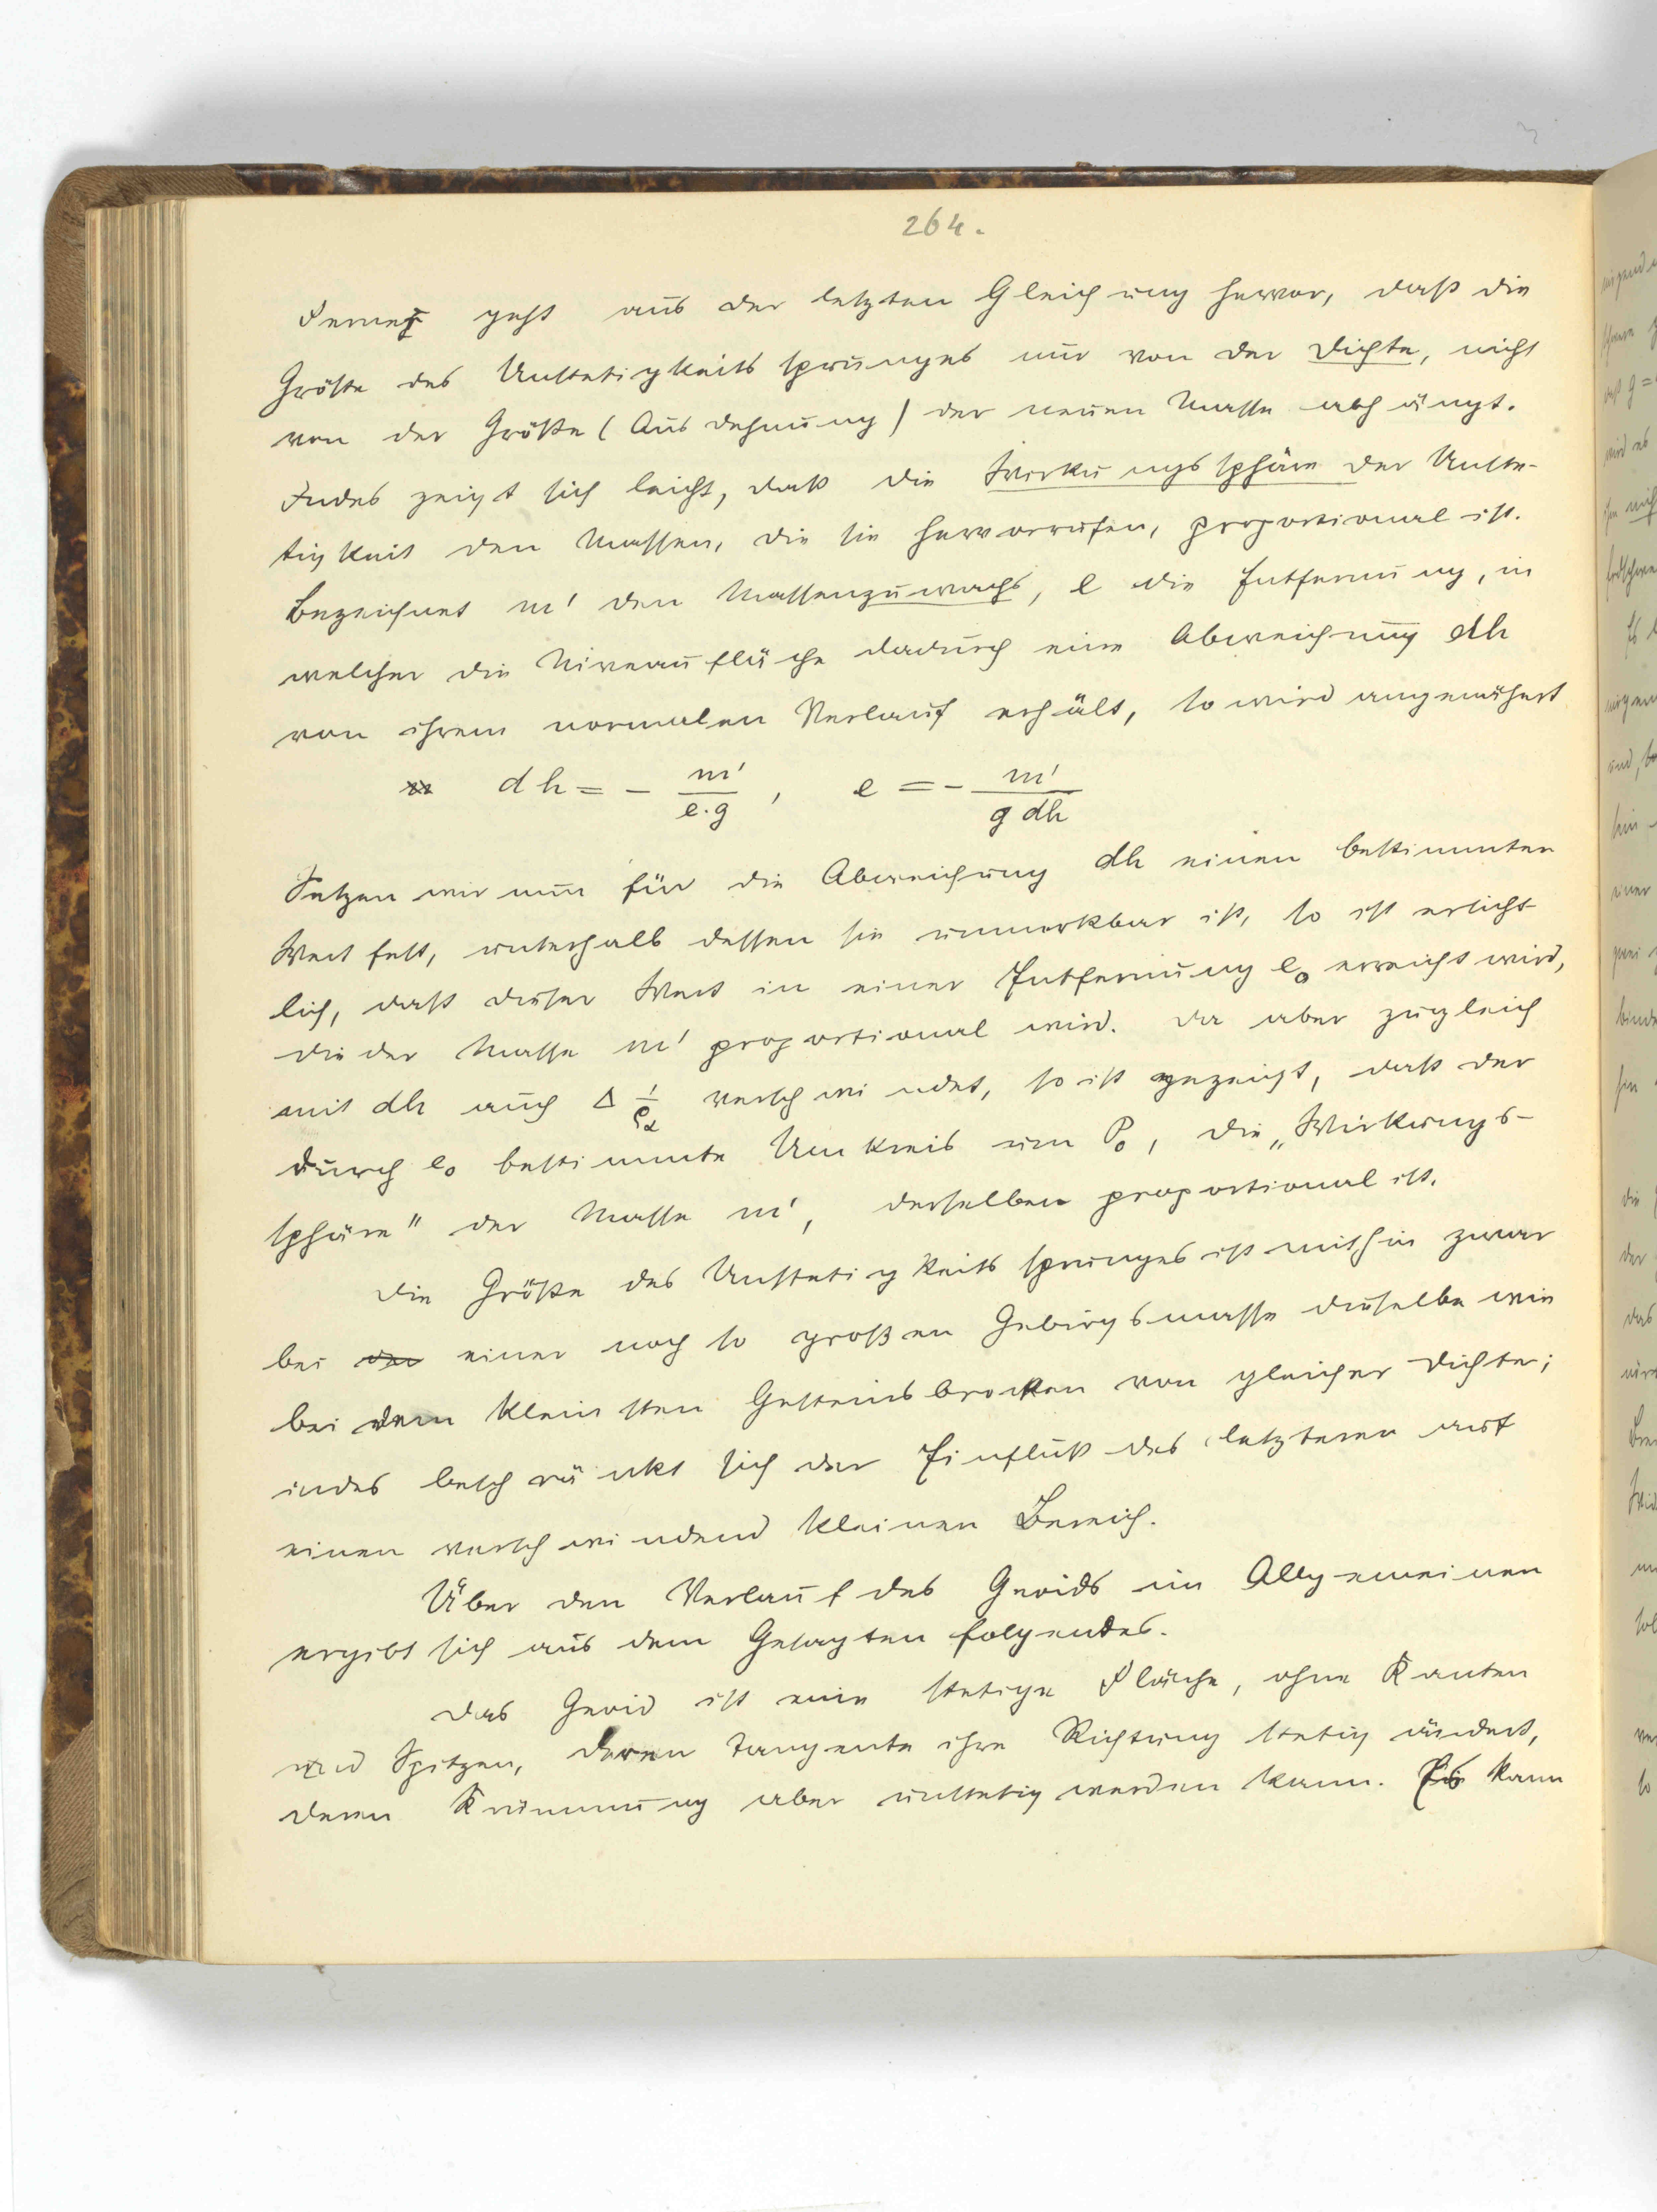 264.
Ferner geht aus der letzten Gleichung hervor, daß die
Größe des Unstetigkeitssprunges nur von der Dichte, nicht
von der Größe (Ausdehnung) der neuen Masse abhängt.
Indes zeigt sich leicht, daß die Wirkungssphäre der Unste-
tigkeit den Massen, die sie hervorrufen, proportional ist.
Bezeichnet m' den Massenzuwachs, e die Entfernung, in
welcher die Niveaufläche dadurch eine Abweichung dh
von ihrem normalen Verlauf erhält, so wird angenähert
dh = - m'/e.g , e = - m'/g dh
Setzen wir nun für die Abweichung dh einen bestimmten
Wert fest, unterhalb dessen sie unmerkbar ist, so ist ersicht-
lich, daß dieser Wert in einer Entfernung e₀ erreicht wird,
die der Masse m' proportional wird. Da aber zugleich
mit dh auch Δ 1/ϱα verschwindet, so ist gezeigt, daß der
durch e₀ bestimmte Umkreis um P₀, die „Wirkungs-
sphäre" der Masse m', derselben proportional ist.
Die Größe des Unstetigkeitssprunges ist mithin zwar
bei einer noch so großen Gebirgsmasse dieselbe wie
bei dem kleinsten Gesteinsbrocken von gleicher Dichte;
indes beschränkt sich der Einfluß des letzteren auf
einen verschwindend kleinen Bereich.
Über den Verlauf des Geoids im Allgemeinen
ergibt sich aus dem Gesagten folgendes.
Das Geoid ist eine stetige Fläche, ohne Kanten
und Spitzen, deren Tangente ihre Richtung stetig ändert,
deren Krümmung aber unstetig werden kann. Es kann